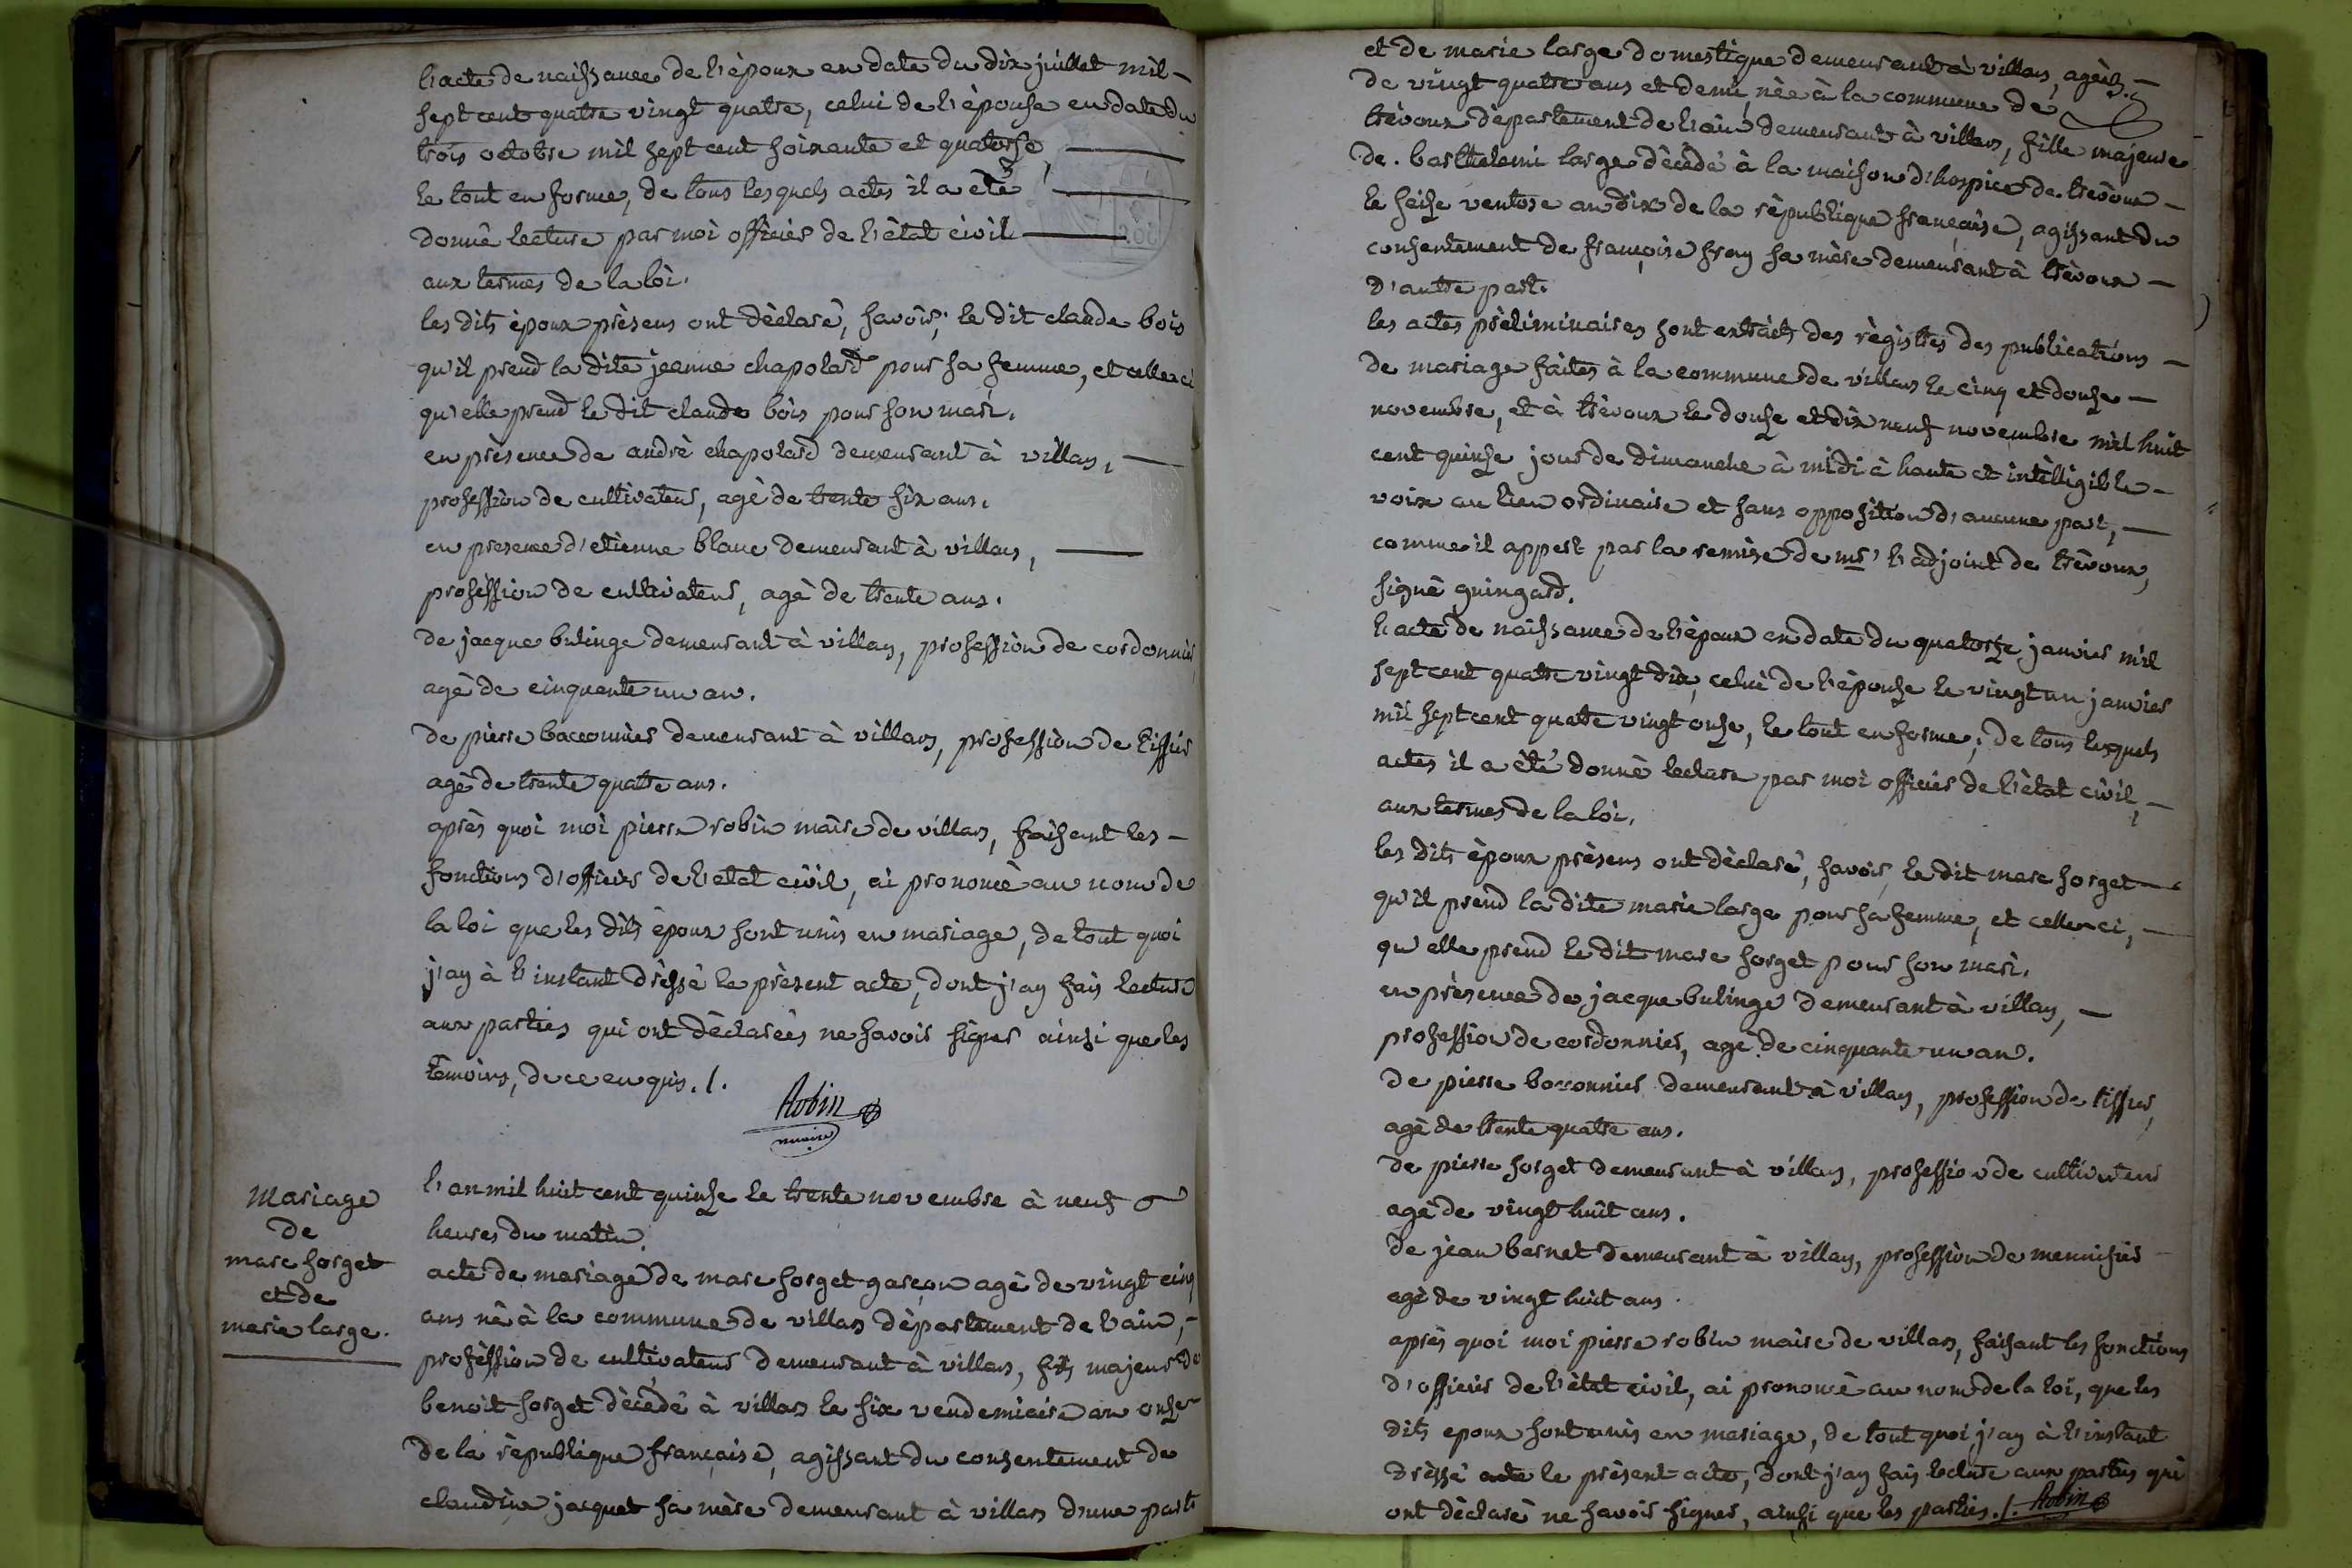 l'acte de naissance de l'époux en date du dix juillet mil
sept cent quatre vingt quatre, celui de l'épouse en date du
trois octobre mil sept cent soixante et quatorse,
le tout en forme, de tous lesquels actes il a été
donné lecture par moi officier de l'état civil
aux termes de la loi.
les dits époux présens ont déclaré, savoir, le dit claude bois
qu'il prend la dite jeanne chapolard pour sa femme, et celle ci
qu'elle prend le dit claude bois pour son mari.
en présence de andré chapolard demeurant à villars,
profession de cultivateur, agé de trente six ans.
en presence d'etienne blanc demeurant à villars,
profession de cultivateur, agé de trente ans.
de jacque bulinge demeurant à villars, profession de cordonnier
agé de cinquante un an.
de pierre baconnier demeurant à villars, profession de tissier
agé de trente quatre ans.
après quoi moi pierre robin maire de villars, faisant les
fonctions d'officier de l'etat civil, ai prononcé au nom de
la loi que les dits époux sont unis en mariage, de tout quoi
j'ay à l'instant dressé le présent acte, dont j'ay fais lecture
aux parties qui ont déclarées ne savoir signer ainsi que les
témoins, de ce enquis./.
Robin
maire
Mariage
de
marc forget
et de
marie large.
l'an mil huit cent quinse le trente novembre à neuf
heures du matin.
acte de mariage de marc forget garçon agé de vingt cinq
ans né à la commune de villars département de l'ain,
profession de cultivateur demeurant à villars, fils majeur de
benoit forget décédé à villars le six vendemiaire an onse
de la république française, agissant du consentement de
claudine jacquet sa mère demeurant à villars d'une part
et de marie large domestique demeurant à villars, agée
de vingt quatre ans et demi, née à la commune de
trévoux département de l'ain demeurant à villars, fille majeure
de barthelemi large décédé à la maison d'hospice de trévoux
le seise ventose an dix de la république française, agissant du
consentement de françoise fray sa mère demeurant à trévoux
d'autre part.
les actes préliminaires sont extraits des régistres des publications
de mariage faites à la commune de villars le cinq et douse
novembre, et à trévoux le douse et dix neuf novembre mil huit
cent quinse jour de dimanche à midi à haute et intelligible
voix au lieu ordinaire et sans opposition d'aucune part,
comme il appert par la remise de mr l'adjoint de trévoux,
signé guingard.
l'acte de naissance de l'époux en date du quatorse janvier mil
sept cent quatre vingt dix, celui de l'épouse le vingt un janvier
mil sept cent quatre vingt onse, le tout en forme; de tous lesquels
actes il a été donné lecture par moi officier de l'état civil,
aux termes de la loi.
les dits époux présens ont déclaré, savoir, le dit marc forget
qu'il prend la dite marie large pour sa femme, et celle ci,
qu'elle prend le dit marc forget pour son mari.
en présence de jacque bulinge demeurant à villars,
profession de cordonnier, agé de cinquante un an.
de pierre baconnier demeurant à villars, profession de tissier,
agé de trente quatre ans.
de pierre forget demeurant à villars, profession de cultivateur
agé de vingt huit ans.
de jean bernet demeurant à villars, profession de menuisier
agé de vingt huit ans.
après quoi moi pierre robin maire de villars, faisant les fonctions
d'officier de l'état civil, ai prononcé au nom de la loi, que les
dits epoux sont unis en mariage, de tout quoi, j'ay à l'instant
dressé acte le présent acte, dont j'ay fais lecture aux parties qui
ont déclaré ne savoir signer, ainsi que les parties./. Robin